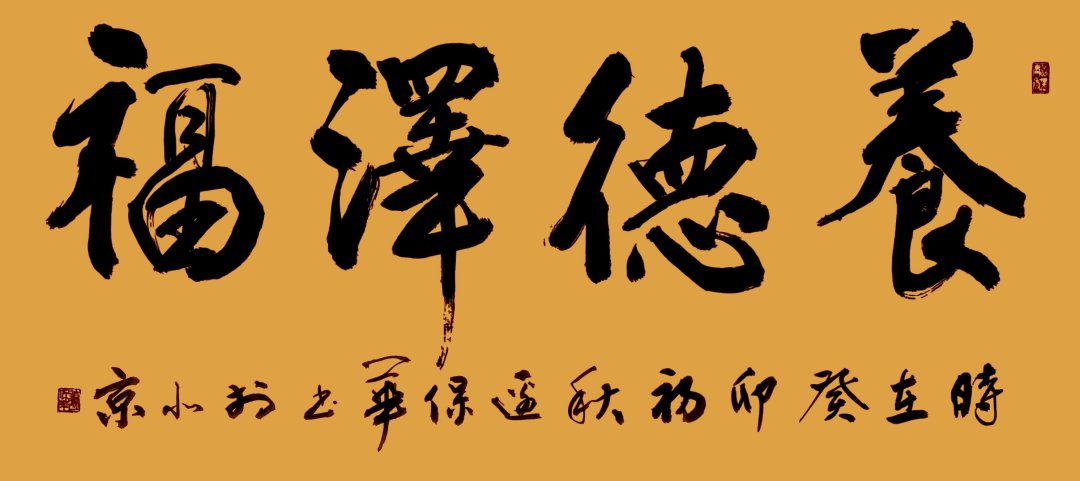 養德澤福
時在癸卯初秋保華书於北京